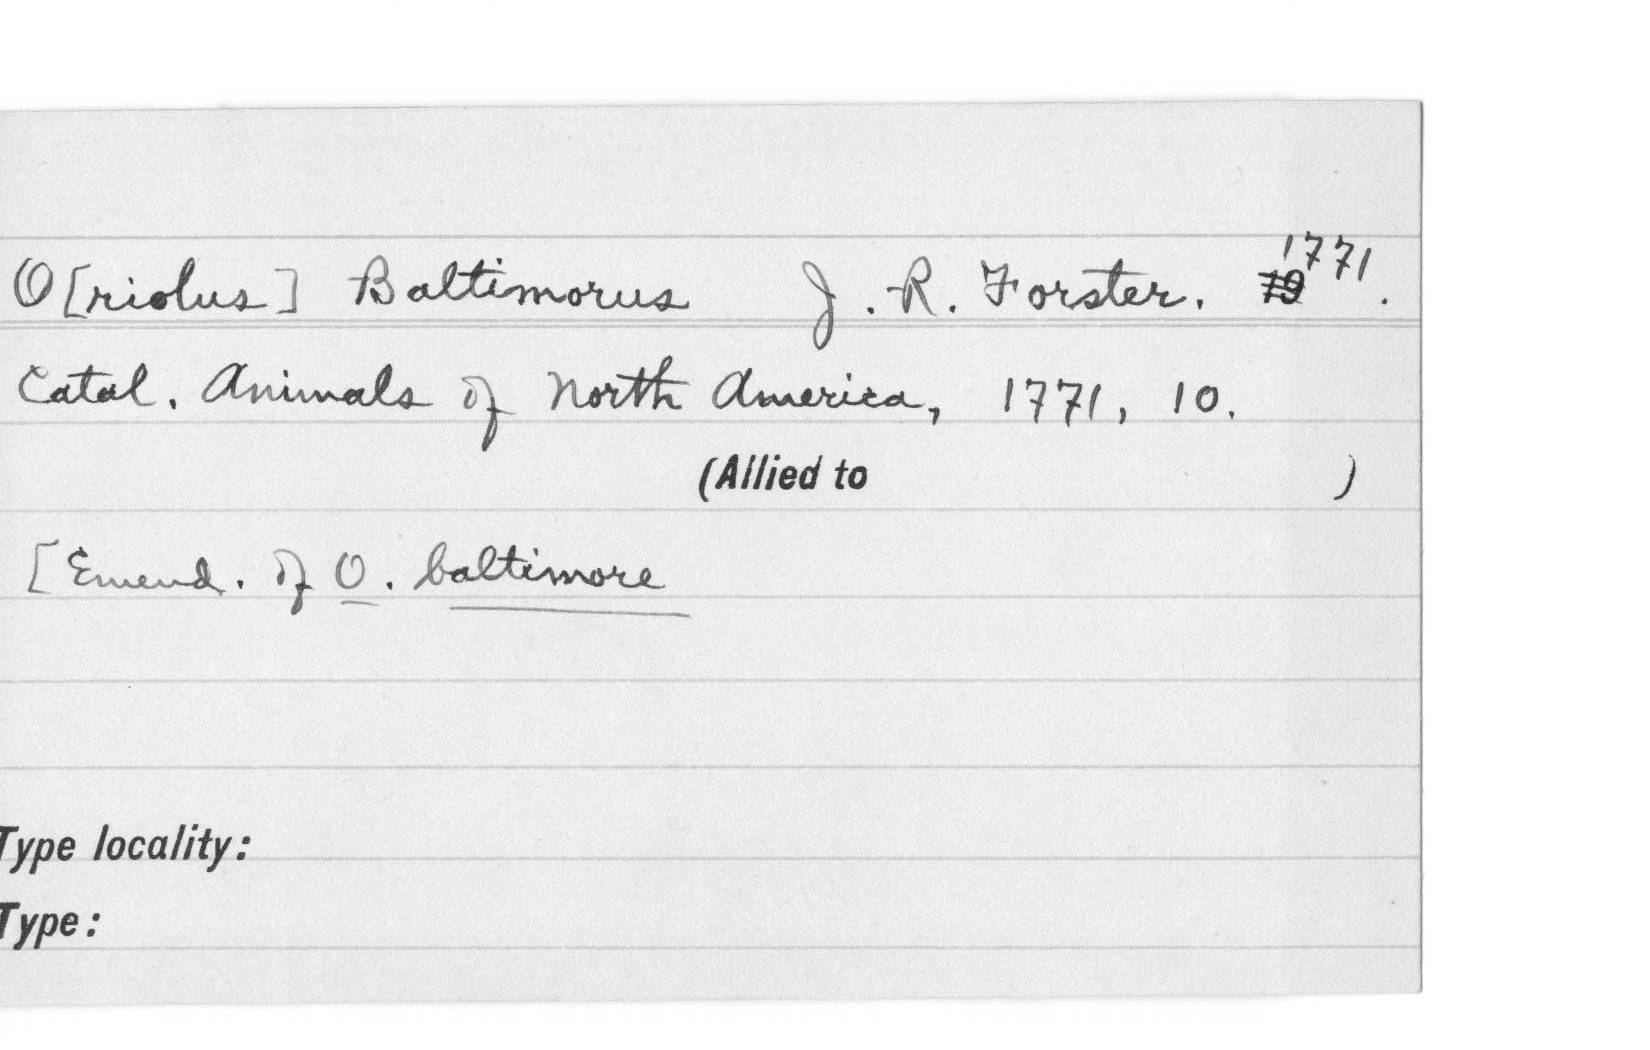 O[riolus] Baltimorus J. R. Forster. 1771.
Catal. Animals of North America, 1771, 10.
(Allied to )
[Emend. of O. baltimore
Type locality:
Type: